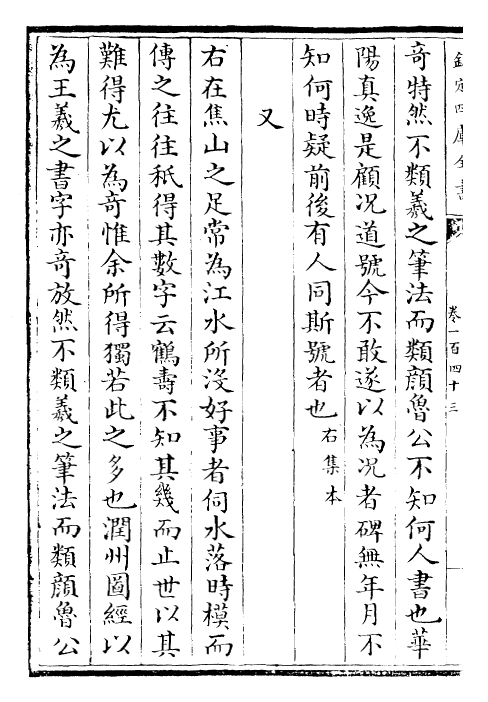 欽定四庫全書
卷一百四十三
奇特然不類羲之筆法而類顔魯公不知何人書也華
陽真逸是顧况道號今不敢遂以為况者碑無年月不
知何時疑前後有人同斯號者也右集本
又
右在焦山之足常為江水所沒好事者伺水落時模而
傳之往往秖得其數字云鶴壽不知其幾而止世以其
難得尤以為奇惟余所得獨若此之多也潤州圖經以
為王羲之書字亦奇放然不類羲之筆法而類顔魯公